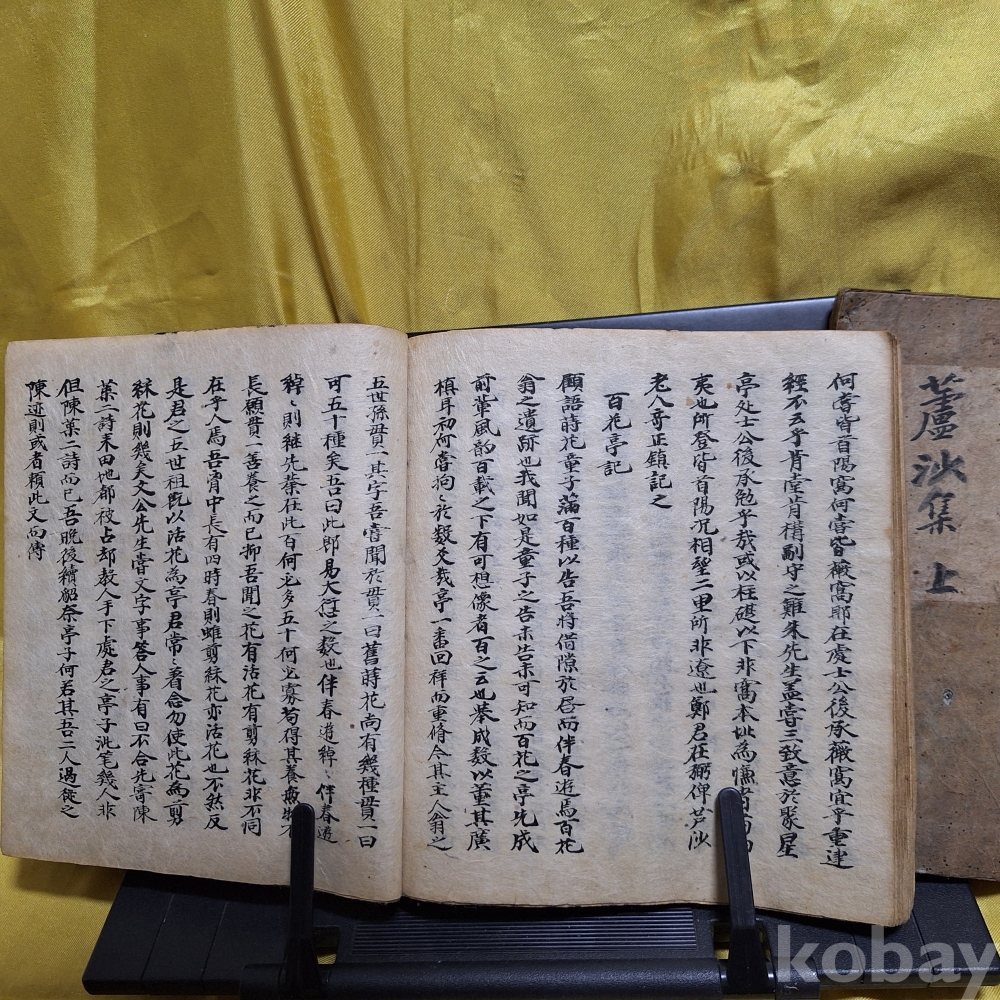 何嘗皆首陽窩何嘗皆薇窩耶在處士公後承薇窩宜乎重建
經不云乎肯堂肯構副守之難朱先生盖嘗三致意於聚星
亭处士公後承勉乎哉或以柱礎以下非窩本址為慊
夷也所登皆首陽况相望二里所非遼也鄭君在弼俾芦沙
老人奇正鎮記之
百花亭記
顧語蒔花童子滿百種以告吾將借隙於啓而伴春遊焉百花
翁之遺跡也我聞如是童子之告未告未可知而百花之亭此成
前軰風韵百載之下有可想像者百之云也恭成数以董其廣
植耳初何嘗拘〻於数爻哉亭一番回祥而重脩今其主人翁之
五世孫贯一其字吾嘗聞於贯一曰舊蒔花尚有幾種贯一曰
可五十種矣吾曰此郎易大衍之数也伴春遊綽〻伴春遊
綽〻則継先業在此百何必多五十何必寡苟得其養無物不
長願贯一善養之而已抑吾聞之花有活花有剪綵花非不同
在乎人焉吾胷中長有四時春則雖剪綵花亦活花也不然反
是君之五世祖旣以活花為亭君常〻着念勿使此花為剪
綵花則幾矣文公先生嘗文字事答人事有曰不合先寄陳
葉二詩来田地都被占却教人手下處君之亭子泚笔幾人非
但陳葉二詩而已吾晩後續貂奈亭子何若其吾二人過從之
陳迹則或者頼此文而傳
蘆沙集 上
kobay